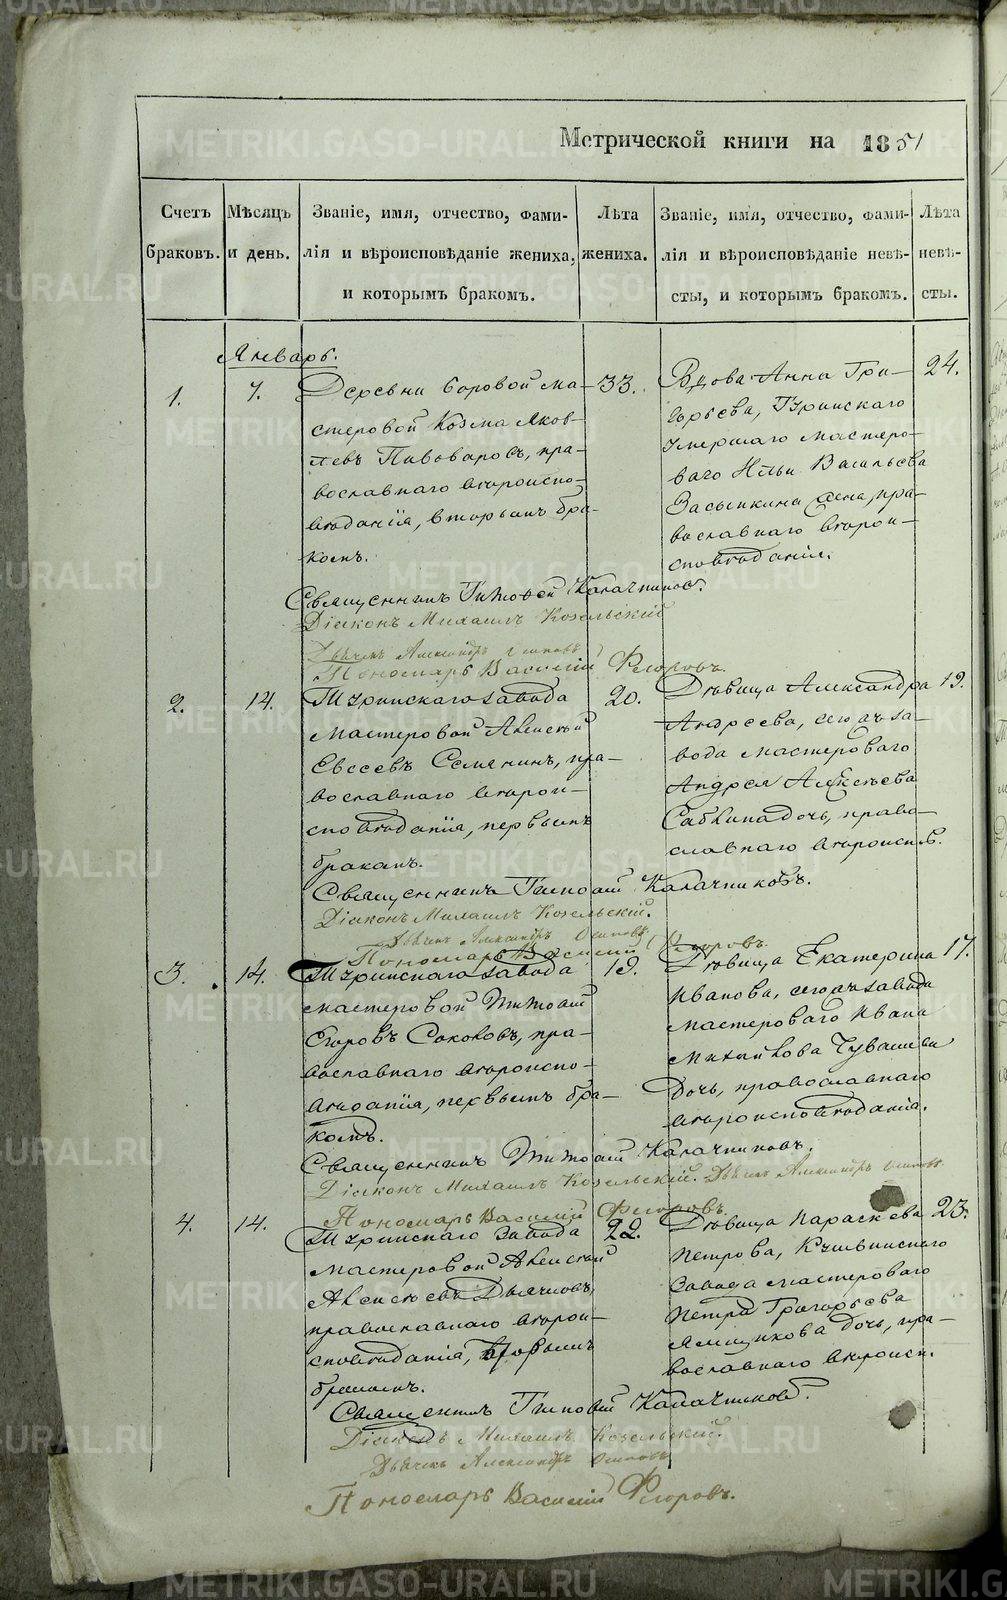 Метрической книги на 1851
Счетъ браковъ.
Мѣсяцъ и день.
Званіе, имя, отчество, фами-
лія и вѣроисповѣданіе жениха,
и которымъ бракомъ.
Лѣта жениха.
Званіе, имя, отчество, фами-
лія и вѣроисповѣданіе невѣ-
сты, и которымъ бракомъ.
Лѣта невѣ-
сты.
Январь.
1.
7.
Деревни Боровой ма-
стеровой Козма Яков-
левъ Пивоваровъ, пра-
вославнаго вѣроиспо-
вѣданія, вторымъ бра-
комъ.
33.
Вдова Анна Гри-
горьева, Туринскаго
умершаго мастеро-
ваго Ильи Васильева
Засыпкина жена, пра-
вославнаго вѣрои-
сповѣданія.
24.
Священникъ Тимофей Калачниковъ.
Діаконъ Михаилъ Козельскій
Дьячекъ Александръ Осиповъ
Пономарь Василій Федоровъ.
2.
14.
Туринскаго завода
мастеровой Алексѣй
Евсеевъ Семянинъ, пра-
вославнаго вѣрои-
сповѣданія, первымъ
бракомъ.
20.
Дѣвица Александра
Андреева, сегожъ за-
вода мастероваго
Андрея Алексѣева
Сабкина дочь, право-
славнаго вѣроиспов.
19.
Священникъ Тимофей Калачниковъ.
Діаконъ Михаилъ Козельскій.
Дьячекъ Александръ Осиповъ
Пономарь Василій Федоровъ.
3.
14.
Туринскаго завода
мастеровой Тимофей
Егоровъ Соколовъ, пра-
вославнаго вѣроиспо-
вѣданія, первымъ бра-
комъ.
19.
Дѣвица Екатерина
Иванова, сегожъ завода
мастероваго Ивана
Михайлова Чувашева
дочь, православнаго
вѣроисповѣданія.
17.
Священникъ Тимофей Калачниковъ.
Діаконъ Михаилъ Козельскій. Дьячекъ Александръ Осиповъ
Пономарь Василій Федоровъ.
4.
14.
Туринскаго завода
мастеровой Алексѣй
Алексѣевъ Дьячковъ,
православнаго вѣрои-
сповѣданія, вторымъ
бракомъ.
22.
Дѣвица Параскева
Петрова, Кушвинскаго
завода мастероваго
Петра Григорьева
Ямщикова дочь, пра-
вославнаго вѣроисп.
23.
Священникъ Тимофей Калачниковъ.
Діаконъ Михаилъ Козельскій.
Дьячекъ Александръ Осиповъ
Пономарь Василій Федоровъ.
METRIKI.GASO-URAL.RU